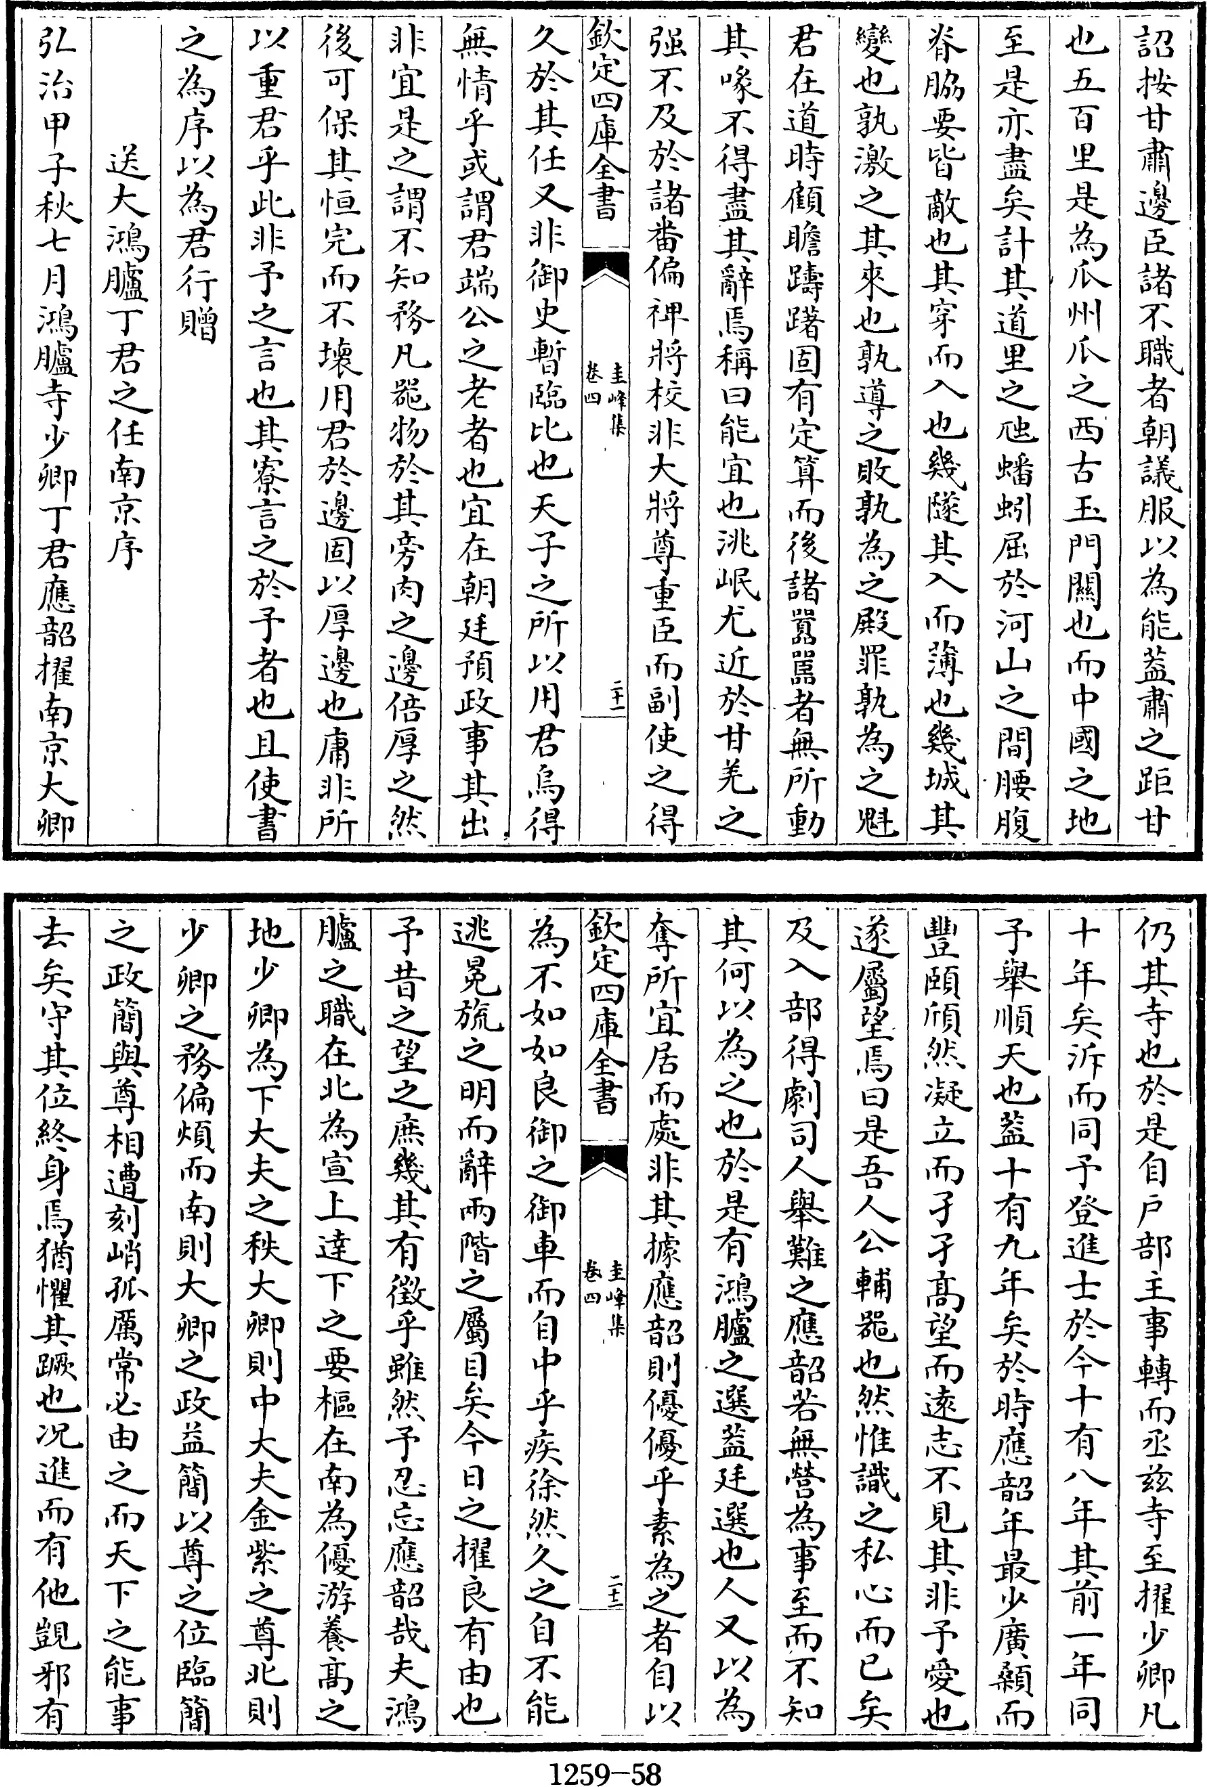 詔按甘肅邊臣諸不職者朝議服以為能蓋肅之距甘
也五百里是為瓜州瓜之西古玉門關也而中國之地
至是亦盡矣計其道里之虺蟠蚓屈於河山之間腰腹
脊脇要皆敵也其穿而入也幾隧其入而薄也幾城其
變也孰激之其來也孰導之敗孰為之殿罪孰為之魁
君在道時顧瞻躊躇固有定算而後諸囂囂者無所動
其喙不得盡其辭焉稱曰能宜也洮岷尤近於甘羌之
强不及於諸番偏裨將校非大將尊重臣而副使之得
欽定四庫全書
圭峰集
卷四
二十一
久於其任又非御史暫臨比也天子之所以用君烏得
無情乎或謂君端公之老者也宜在朝廷預政事其出
非宜是之謂不知務凡器物於其旁肉之邊倍厚之然
後可保其恒完而不壞用君於邊固以厚邊也庸非所
以重君乎此非予之言也其寮言之於予者也且使書
之為序以為君行贈
送大鴻臚丁君之任南京序
弘治甲子秋七月鴻臚寺少卿丁君應韶擢南京大卿
仍其寺也於是自户部主事轉而丞兹寺至擢少卿凡
十年矣泝而同予登進士於今十有八年其前一年同
予舉順天也蓋十有九年矣於時應韶年最少廣顙而
豐頤頎然凝立而孑孑髙望而遠志不見其非予愛也
遂屬望焉曰是吾人公輔器也然惟識之私心而已矣
及入部得劇司人舉難之應韶若無營為事至而不知
其何以為之也於是有鴻臚之選蓋廷選也人又以為
奪所宜居而處非其據應韶則優優乎素為之者自以
欽定四庫全書
圭峰集
卷四
二十二
為不如如良御之御車而自中乎疾徐然久之自不能
逃冕旒之明而辭兩階之屬目矣今日之擢良有由也
予昔之望之庶幾其有徵乎雖然予忍忘應韶哉夫鴻
臚之職在北為宣上達下之要樞在南為優游養髙之
地少卿為下大夫之秩大卿則中大夫金紫之尊北則
少卿之務偏煩而南則大卿之政益簡以尊之位臨簡
之政簡與尊相遭刻峭孤厲常必由之而天下之能事
去矣守其位終身焉猶懼其蹶也况進而有他覬邪有
1259-58